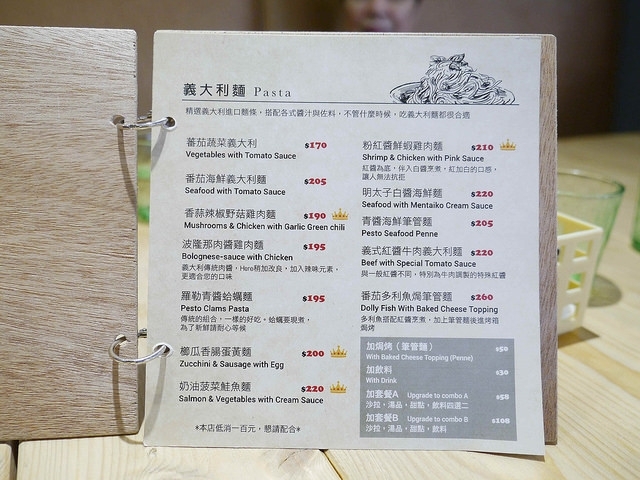 義大利麵 Pasta
精選義大利進口麵條，搭配各式醬汁與佐料，不管什麼時候，吃義大利麵都很合適
蕃茄蔬菜義大利 $170
Vegetables with Tomato Sauce
番茄海鮮義大利麵 $205
Seafood with Tomato Sauce
香蒜辣椒野菇雞肉麵 $190
Mushrooms & Chicken with Garlic Green chili
波隆那肉醬雞肉麵 $195
Bolognese-sauce with Chicken
義大利傳統肉醬，Hero稍加改良，加入辣味元素，
更適合您的口味
羅勒青醬蛤蠣麵 $195
Pesto Clams Pasta
傳統的組合，一樣的好吃，蛤蠣要現煮，
為了新鮮請耐心等候
櫛瓜香腸蛋黃麵 $200
Zucchini & Sausage with Egg
奶油菠菜鮭魚麵 $220
Salmon & Vegetables with Cream Sauce
*本店低消一百元，懇請配合*
粉紅醬鮮蝦雞肉麵 $210
Shrimp & Chicken with Pink Sauce
紅醬為底，伴入白醬烹煮，紅加白的口感，
讓人無法抗拒
明太子白醬海鮮麵 $220
Seafood with Mentaiko Cream Sauce
青醬海鮮筆管麵 $205
Pesto Seafood Penne
義式紅醬牛肉義大利麵 $220
Beef with Special Tomato Sauce
與一般紅醬不同，特別為牛肉調製的特殊紅醬
番茄多利魚焗筆管麵 $260
Dolly Fish With Baked Cheese Topping
多利魚搭配紅醬烹煮，加上筆管麵後進烤箱
焗烤
加焗烤（筆管麵） $50
With Baked Cheese Topping (Penne)
加飲料 $30
With Drink
加套餐A Upgrade to combo A $58
沙拉，湯品，甜點，飲料四選二
加套餐B Upgrade to combo B $108
沙拉，湯品，甜點，飲料